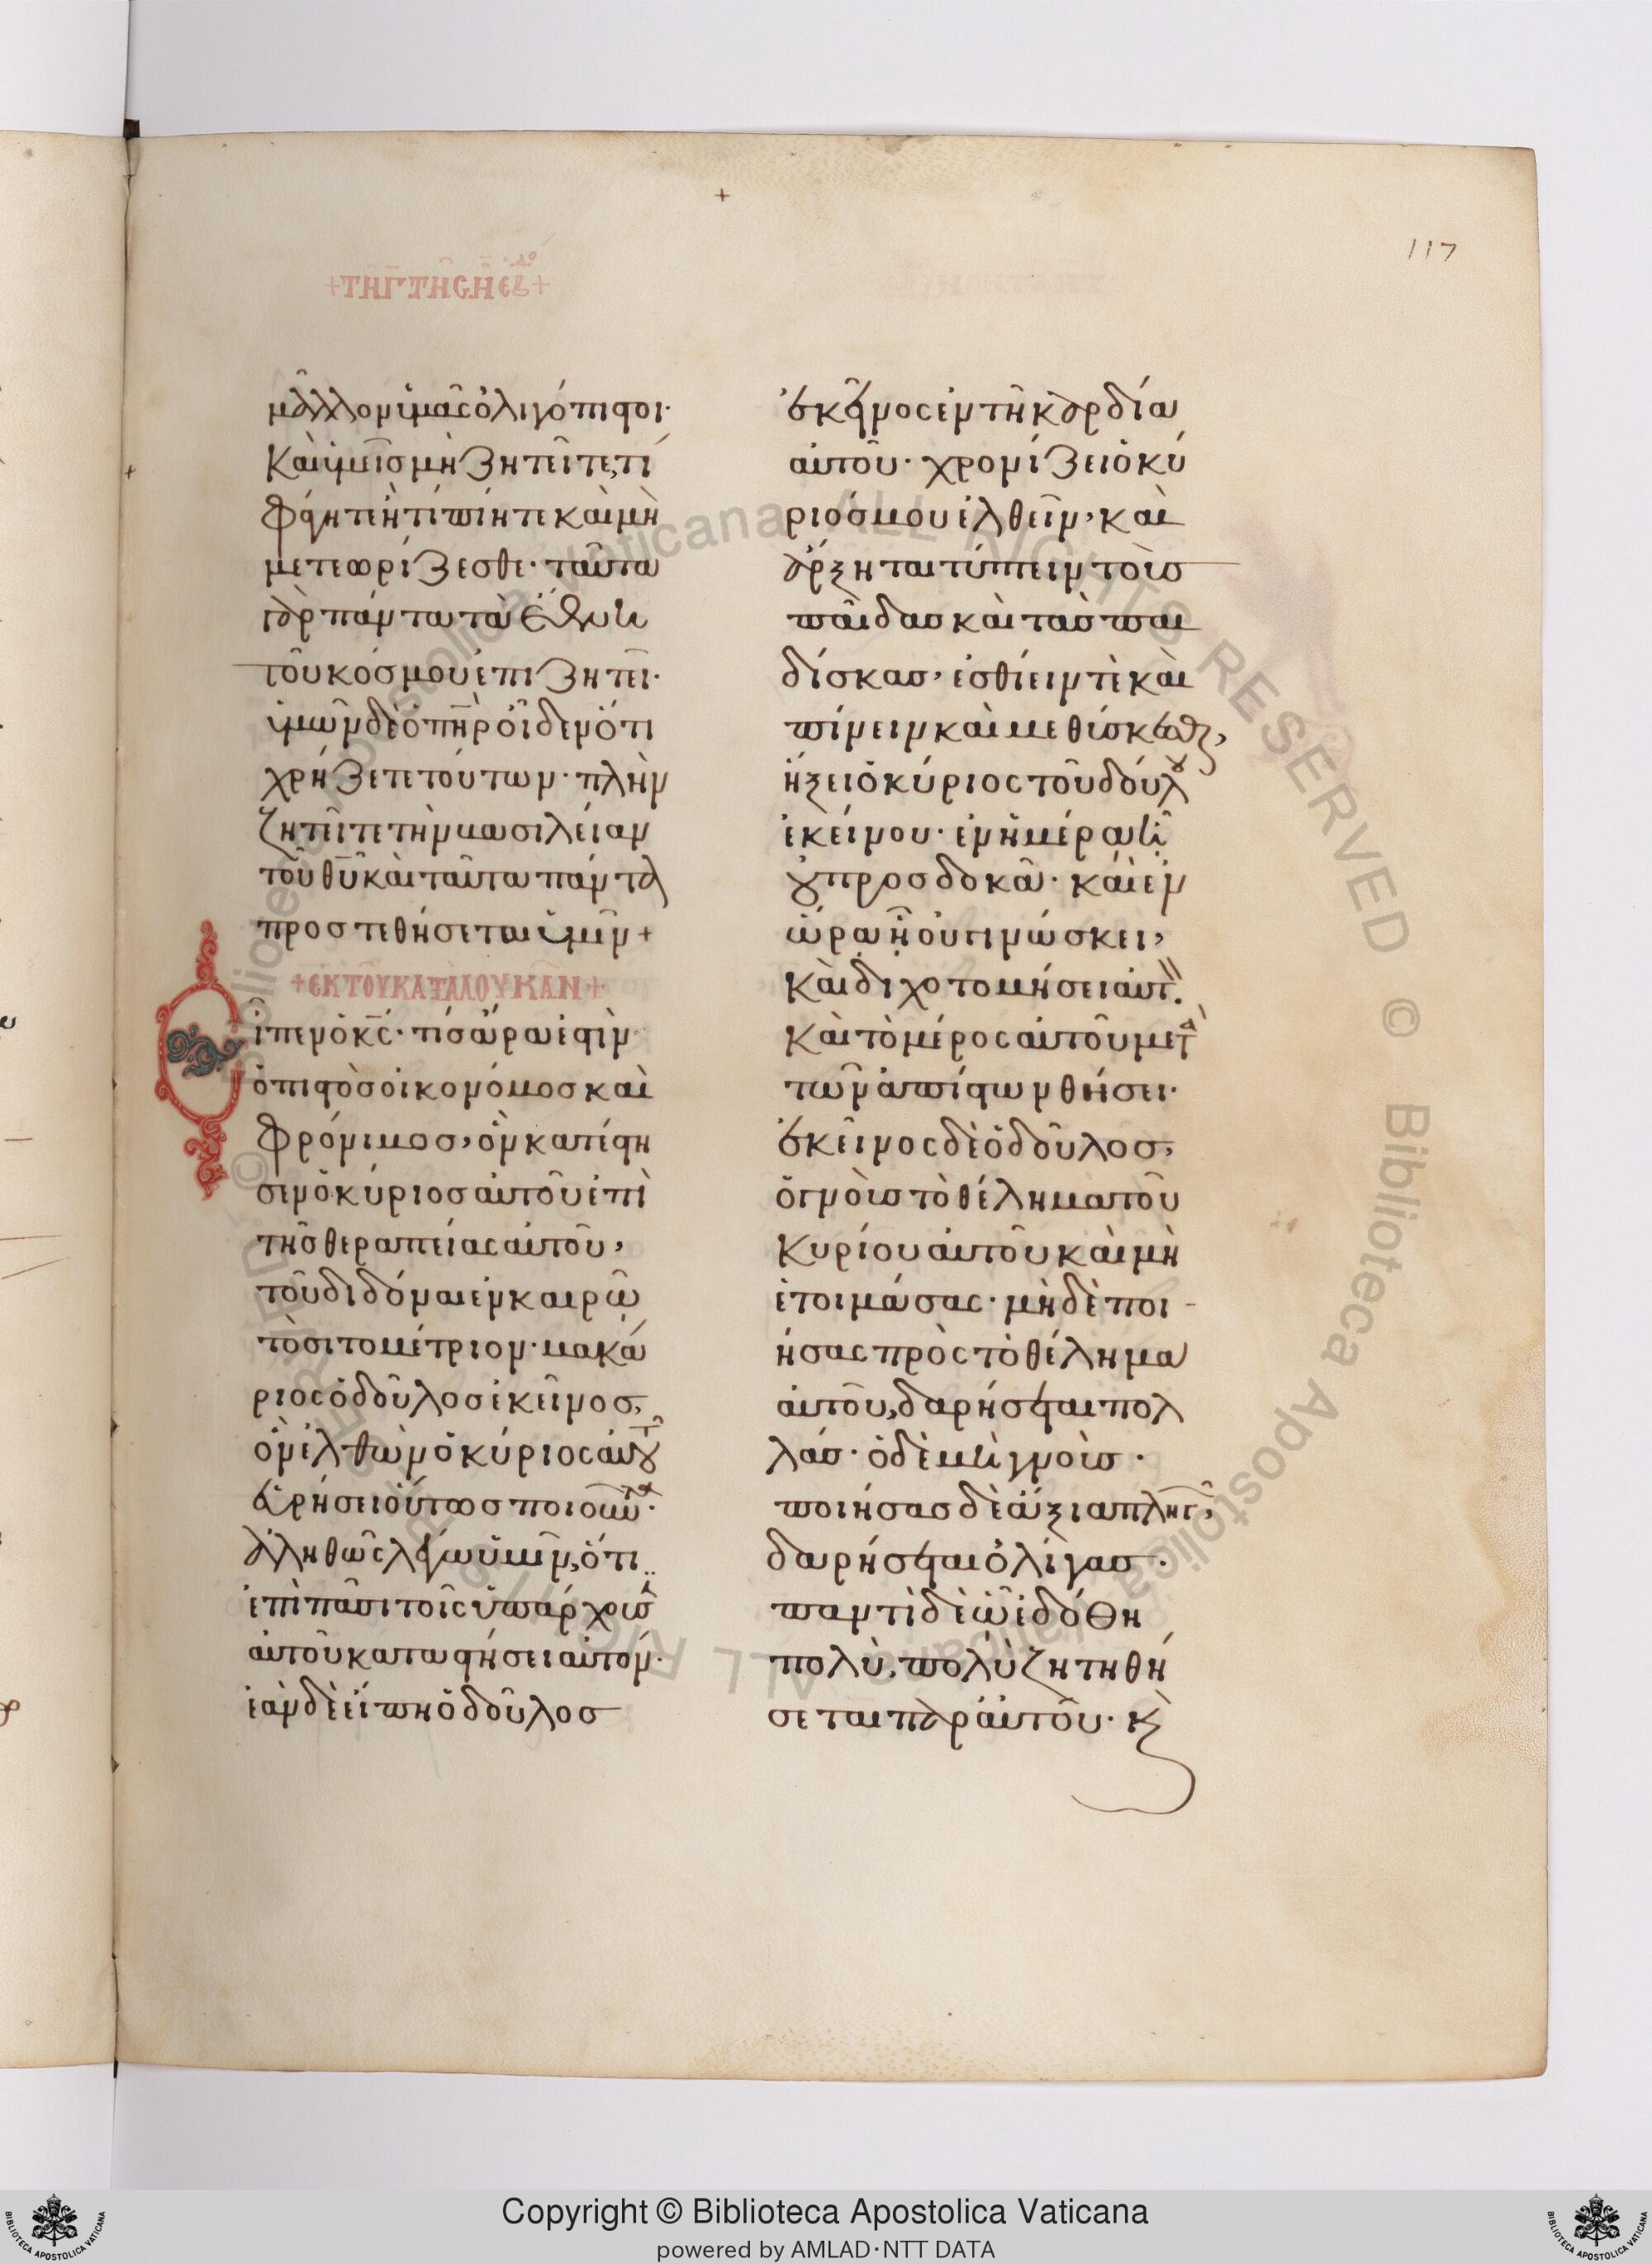 117
+ΤΗ Γ ΤΗϹ Η ΕΒΔΟ+
μᾶλλον ὑμᾶς ὀλιγόπιστοι·
Καὶ ὑμεῖς μὴ ζητεῖτε, τί
φάγητε ἢ τί πίητε καὶ μὴ
μετεωρίζεσθε· ταῦτα
γὰρ πάντα τὰ ἔθνη
τοῦ κόσμου ἐπιζητεῖ·
ὑμῶν δὲ ὁ πη̅ρ οἶδεν ὅτι
χρήζετε τούτων· πλὴν
ζητεῖτε τὴν βασιλείαν
τοῦ θυ̅ καὶ ταῦτα πάντα
προστεθήσεται ὑμῖν+
+ΕΚ ΤΟΥ ΚΑΤΑ ΛΟΥΚΑΝ+
Εἶπεν ὁ κς̅· τίς ἄρα ἐστὶν
ὁ πιστὸς οἰκονόμος καὶ
φρόνιμος, ὃν καταστή
σει ὁ κύριος αὐτοῦ ἐπὶ
τῆς θεραπείας αὐτοῦ,
τοῦ διδόναι ἐν καιρῶ
τὸ σιτομέτριον· μακά
ριος ὁ δοῦλος ἐκεῖνος,
ὃν ἐλθὼν ὁ κύριος αὐτοῦ
εὑρήσει οὕτως ποιοῦντα·
ἀληθῶς λέγω ὑμῖν, ὅτι
ἐπὶ πᾶσι τοῖς ὑπάρχουσιν
αὐτοῦ καταστήσει αὐτόν·
ἐὰν δὲ εἴπη ὁ δοῦλος
ἐκεῖνος ἐν τῆ καρδία
αὐτοῦ· χρονίζει ὁ κύ
ριός μου ἐλθεῖν, καὶ
ἄρξηται τύπτειν τοὺς
παῖδας καὶ τὰς παι
δίσκας, ἐσθίειν τὲ καὶ
πίνειν καὶ μεθύσκεσθαι,
ἥξει ὁ κύριος τοῦ δούλου
ἐκείνου· ἐν ἡμέρα ἧ
οὐ προσδοκᾶ· καὶ ἐν
ὥρα ἧ οὐ γινώσκει,
καὶ διχοτομήσει αὐτόν.
Καὶ τὸ μέρος αὐτοῦ μετὰ
τῶν ἀπίστων θήσει·
ἐκεῖνος δὲ ὁ δοῦλος,
ὁ γνοὺς τὸ θέλημα τοῦ
κυρίου αὐτοῦ καὶ μὴ
ἑτοιμάσας· μὴ δὲ ποι-
ήσας πρὸς τὸ θέλημα
αὐτοῦ, δαρήσεται πολ
λάς· ὁ δὲ μὴ γνοὺς·
ποιήσας δὲ ἄξια πληγῶν,
δαρήσεται ὀλίγας·
παντὶ δὲ ὧ ἐδόθη
πολὺ, πολὺ ζητηθή
σεται παρ αὐτοῦ· κ̀
Copyright © Biblioteca Apostolica Vaticana
powered by AMLAD·NTT DATA
BIBLIOTECA APOSTOLICA VATICANA
BIBLIOTECA APOSTOLICA VATICANA
© Biblioteca Apostolica Vaticana ALL RIGHTS RESERVED © Biblioteca Apostolica Vaticana ALL RIGHTS RESERVED